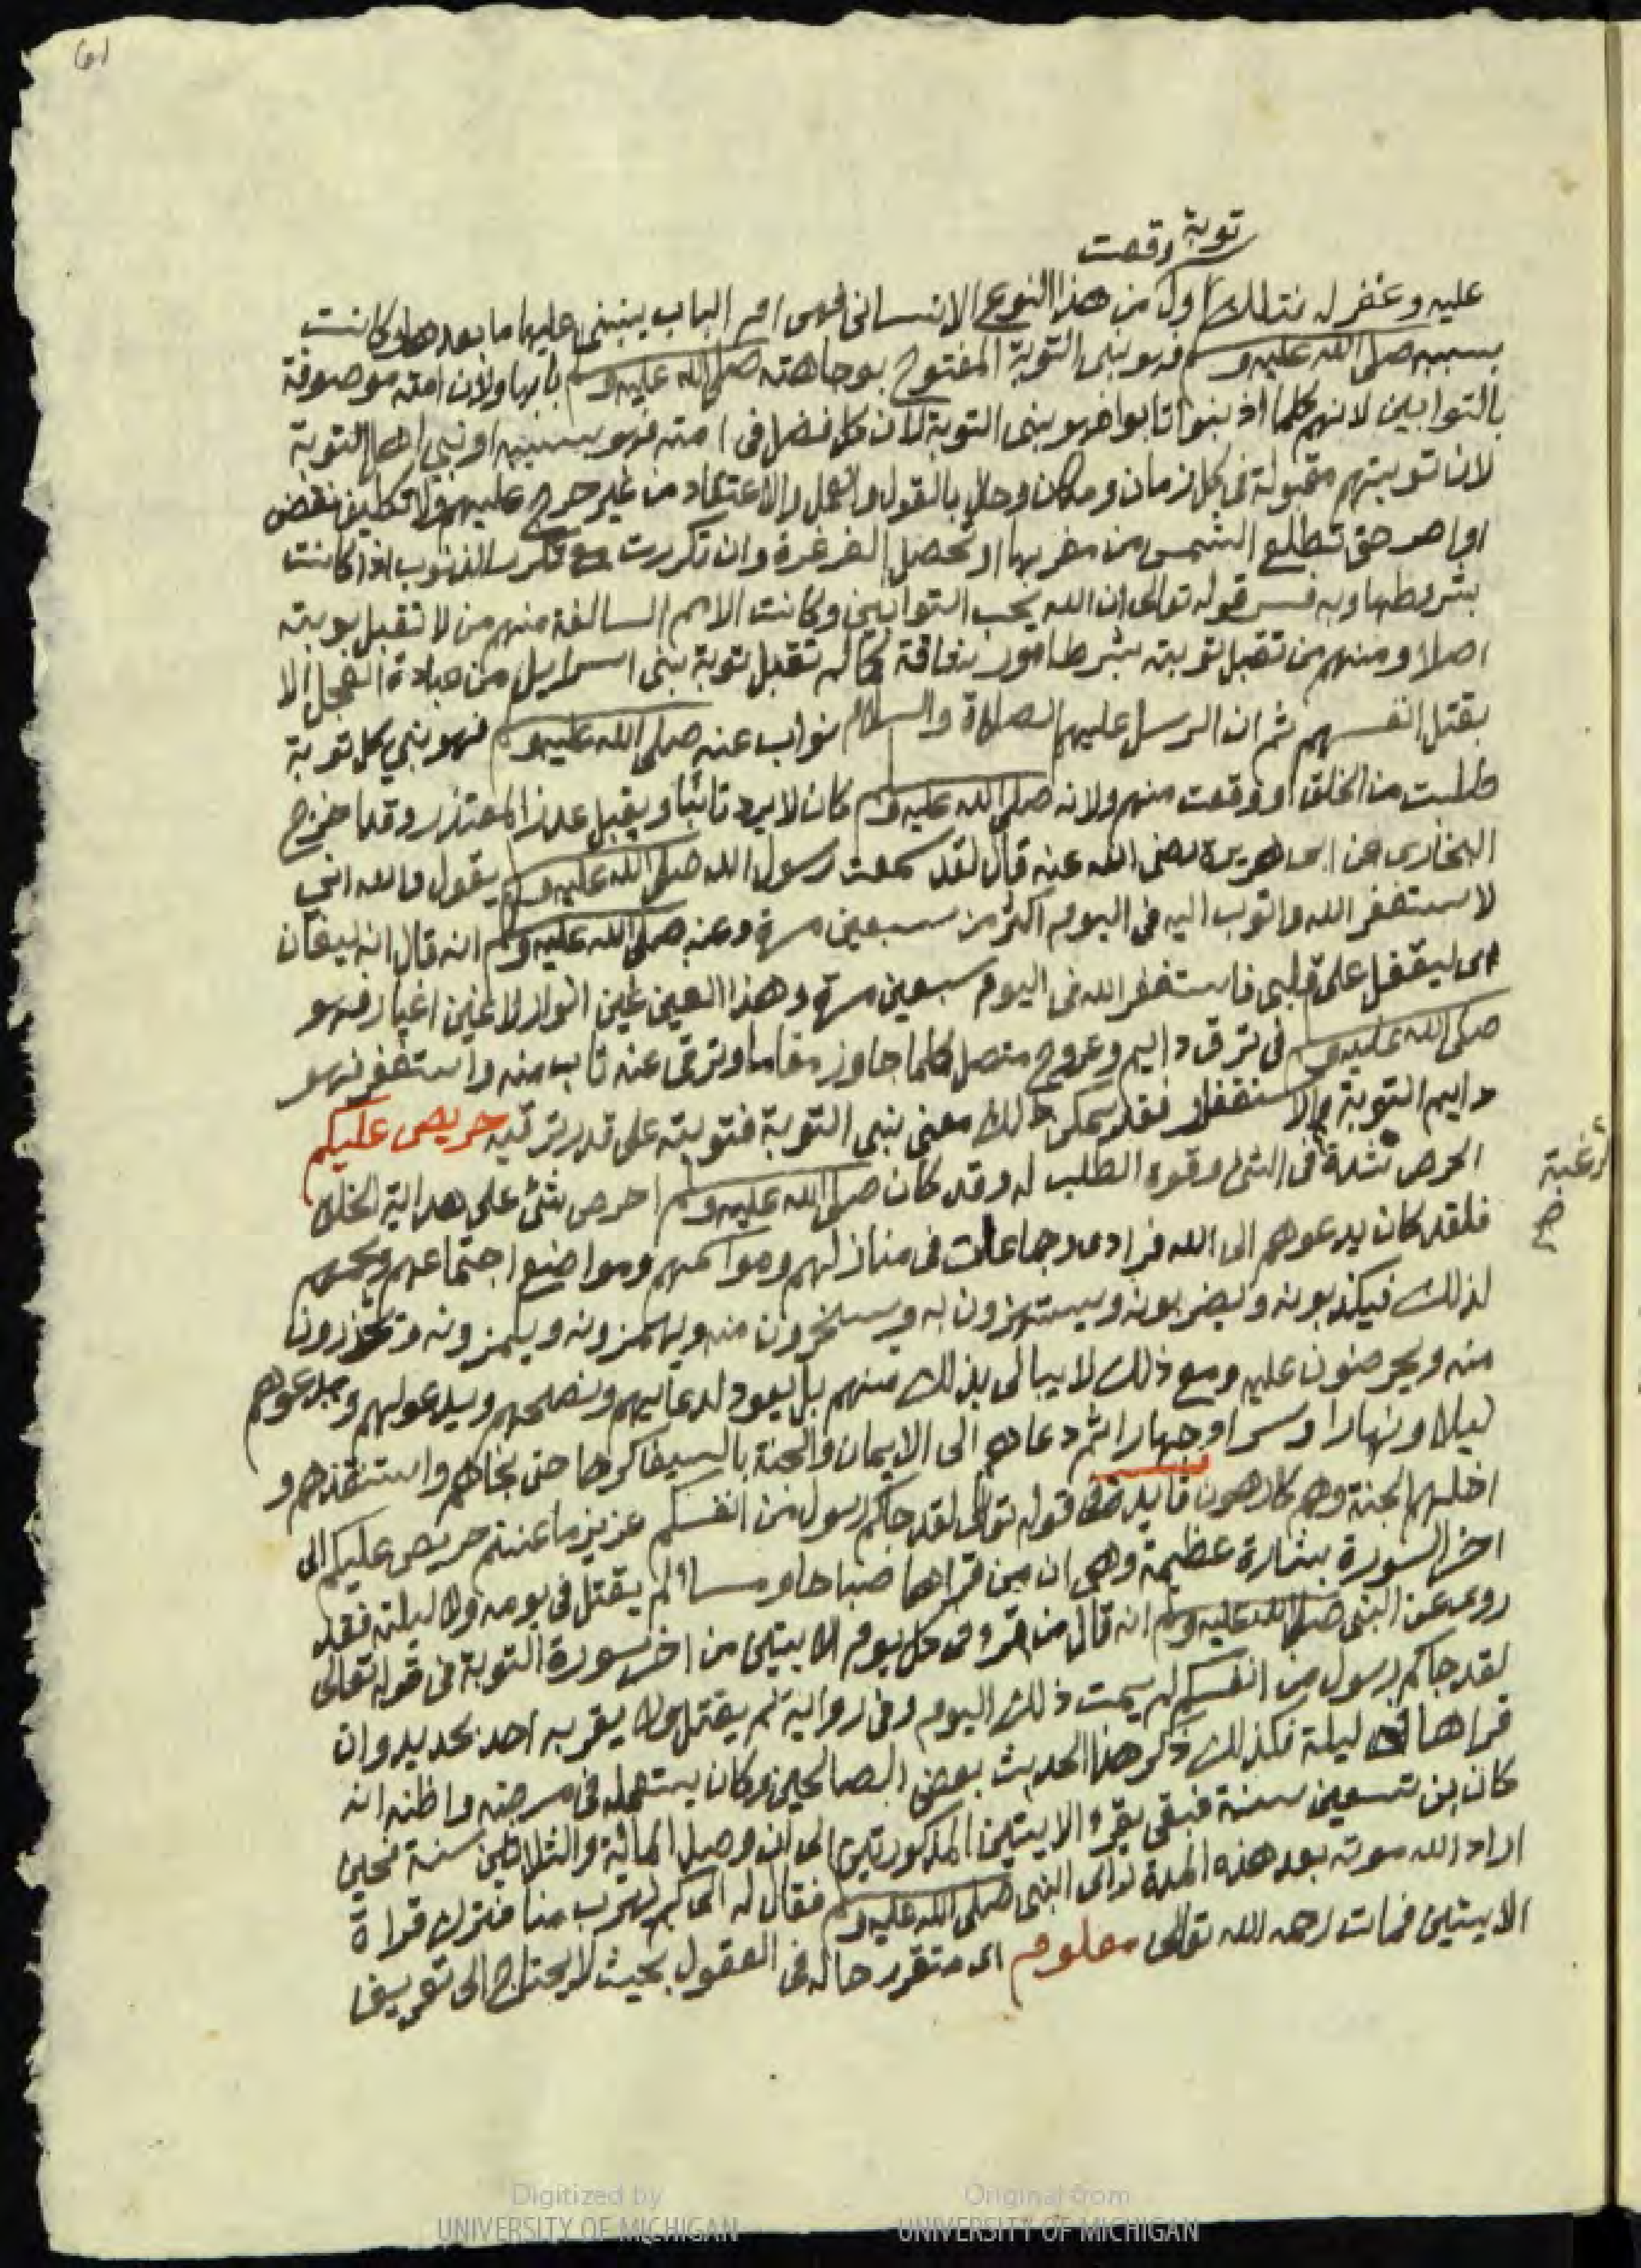 61
توبة وقعت
عليه وغفر له فتلك اول من هذا النوع الانساني فهى ام الباب ينبني عليها ما بعدها وكانت
بسببه صلى الله عليه وسلم فهو نبى التوبة المفتوح بوجاهته صلى الله عليه وسلم بابها ولان امته موصوفة
بالتوابين لانهم كلما اذنبوا تابوا فهو بنى التوبة لان كل فضل فى امته فهو بسببه او نبي اهل التوبة
لان توبتهم مقبولة فى كل زمان ومكان وحال بالقول والعمل والاعتقاد من غير حرج عليهم ولا تكليف نقض
اواصر حتى تطلع الشمس من مغربها او تحصل الغرغرة وان تكررت مع تكرر الذنوب اذا كانت
بشروطها وبه فسر قوله تعالى ان الله يحب التوابين وكانت الامم السالفة منهم من لا تقبل توبته
اصلا ومنهم من تقبل توبته بشرط امور كما لم تقبل توبة بنى اسرايل من عبادة العجل الا
بقتل انفسهم ثم ان الرسل عليهم الصلاة والسلام نواب عنه صلى الله عليه وسلم فهو بني كل توبة
طلبت من الخلق او وقعت منهم ولانه صلى الله عليه وسلم كان لا يرد تائبا ويقبل عذر المعتذر وقد اخرج
البخارى عن ابى هريرة رضى الله عنه قال لقد سمعت رسول الله صلى الله عليه وسلم يقول والله انى
لاستغفر الله واتوب اليه فى اليوم اكثر من سبعين مرة وعنه صلى الله عليه وسلم انه قال انه ليغان
اى ليقفل على قلبى فاستغفر الله فى اليوم سبعين مرة وهذا الغين غين انوار لا غين اغيار فهو
صلى الله عليه وسلم فى ترق دايم وعروج متصل كلما جاوز مقاما وترقى عنه تاب منه واستغفر فهو
دايم التوبة والاستغفار فقد يمكن ذلك معنى نبى التوبة فتوبته على قدر ترقيه حريص عليكم
الحرص شدة فى الشى وقوة الطلب له وقد كان صلى الله عليه وسلم احرص شئ على هداية الخلق
رغبة
صح
فلقد كان يدعوهم الى الله فرادى وجماعات فى منازلهم ومواسمهم ومواضع اجتماعهم
لذلك فيكذبونه ويضربونه ويستهزون به ويسخرون منه ويهمزونه ويلمزونه ويحذرون
منه ويحرضون عليه ومع ذلك لا يبالى بذلك منهم بل يعود لدعايهم ونصحهم ويدعولهم ويدعوهم
ليلا ونهارا وسرا وجهارا ثم دعاهم الى الايمان والجنة بالسيف كرها حتى نجاهم واستنقذهم و
ادخلهم الجنة وهم كارهون فايدة فى قوله تعالى لقد جاكم رسول من انفسكم عزيز ما عنتم حريص عليكم الى
اخر السورة بشارة عظيمة وهى ان من قراها صباحا ومساء لم يقتل فى يومه ولا ليلته فقد
روى عن النبى صلى الله عليه وسلم انه قال من قرا فى كل يوم الايتين من اخر سورة التوبة فى قوله تعالى
لقد جاكم رسول من انفسكم لم يمت ذلك اليوم وفى رواية لم يقتل ولا يقربه احد بحديد وان
قراها ليلة فكذلك ذكر هذا الحديث بعض الصالحين وكان يستعمله فى مرضه واظنه انه
كان بن تسعين سنة فبقى يقرا الايتين المذكورتين الى ان وصل المائة والثلاثين سنة فحين
اراد الله موته بعد هذه المدة راى النبى صلى الله عليه وسلم فقال له الى كم تهرب منا فترك قراة
الايتين فمات رحمه الله تعالى معلوم اى متقرر حاله فى العقول بحيث لا يحتاج الى تعريف
Digitized by
UNIVERSITY OF MICHIGAN
Original from
UNIVERSITY OF MICHIGAN